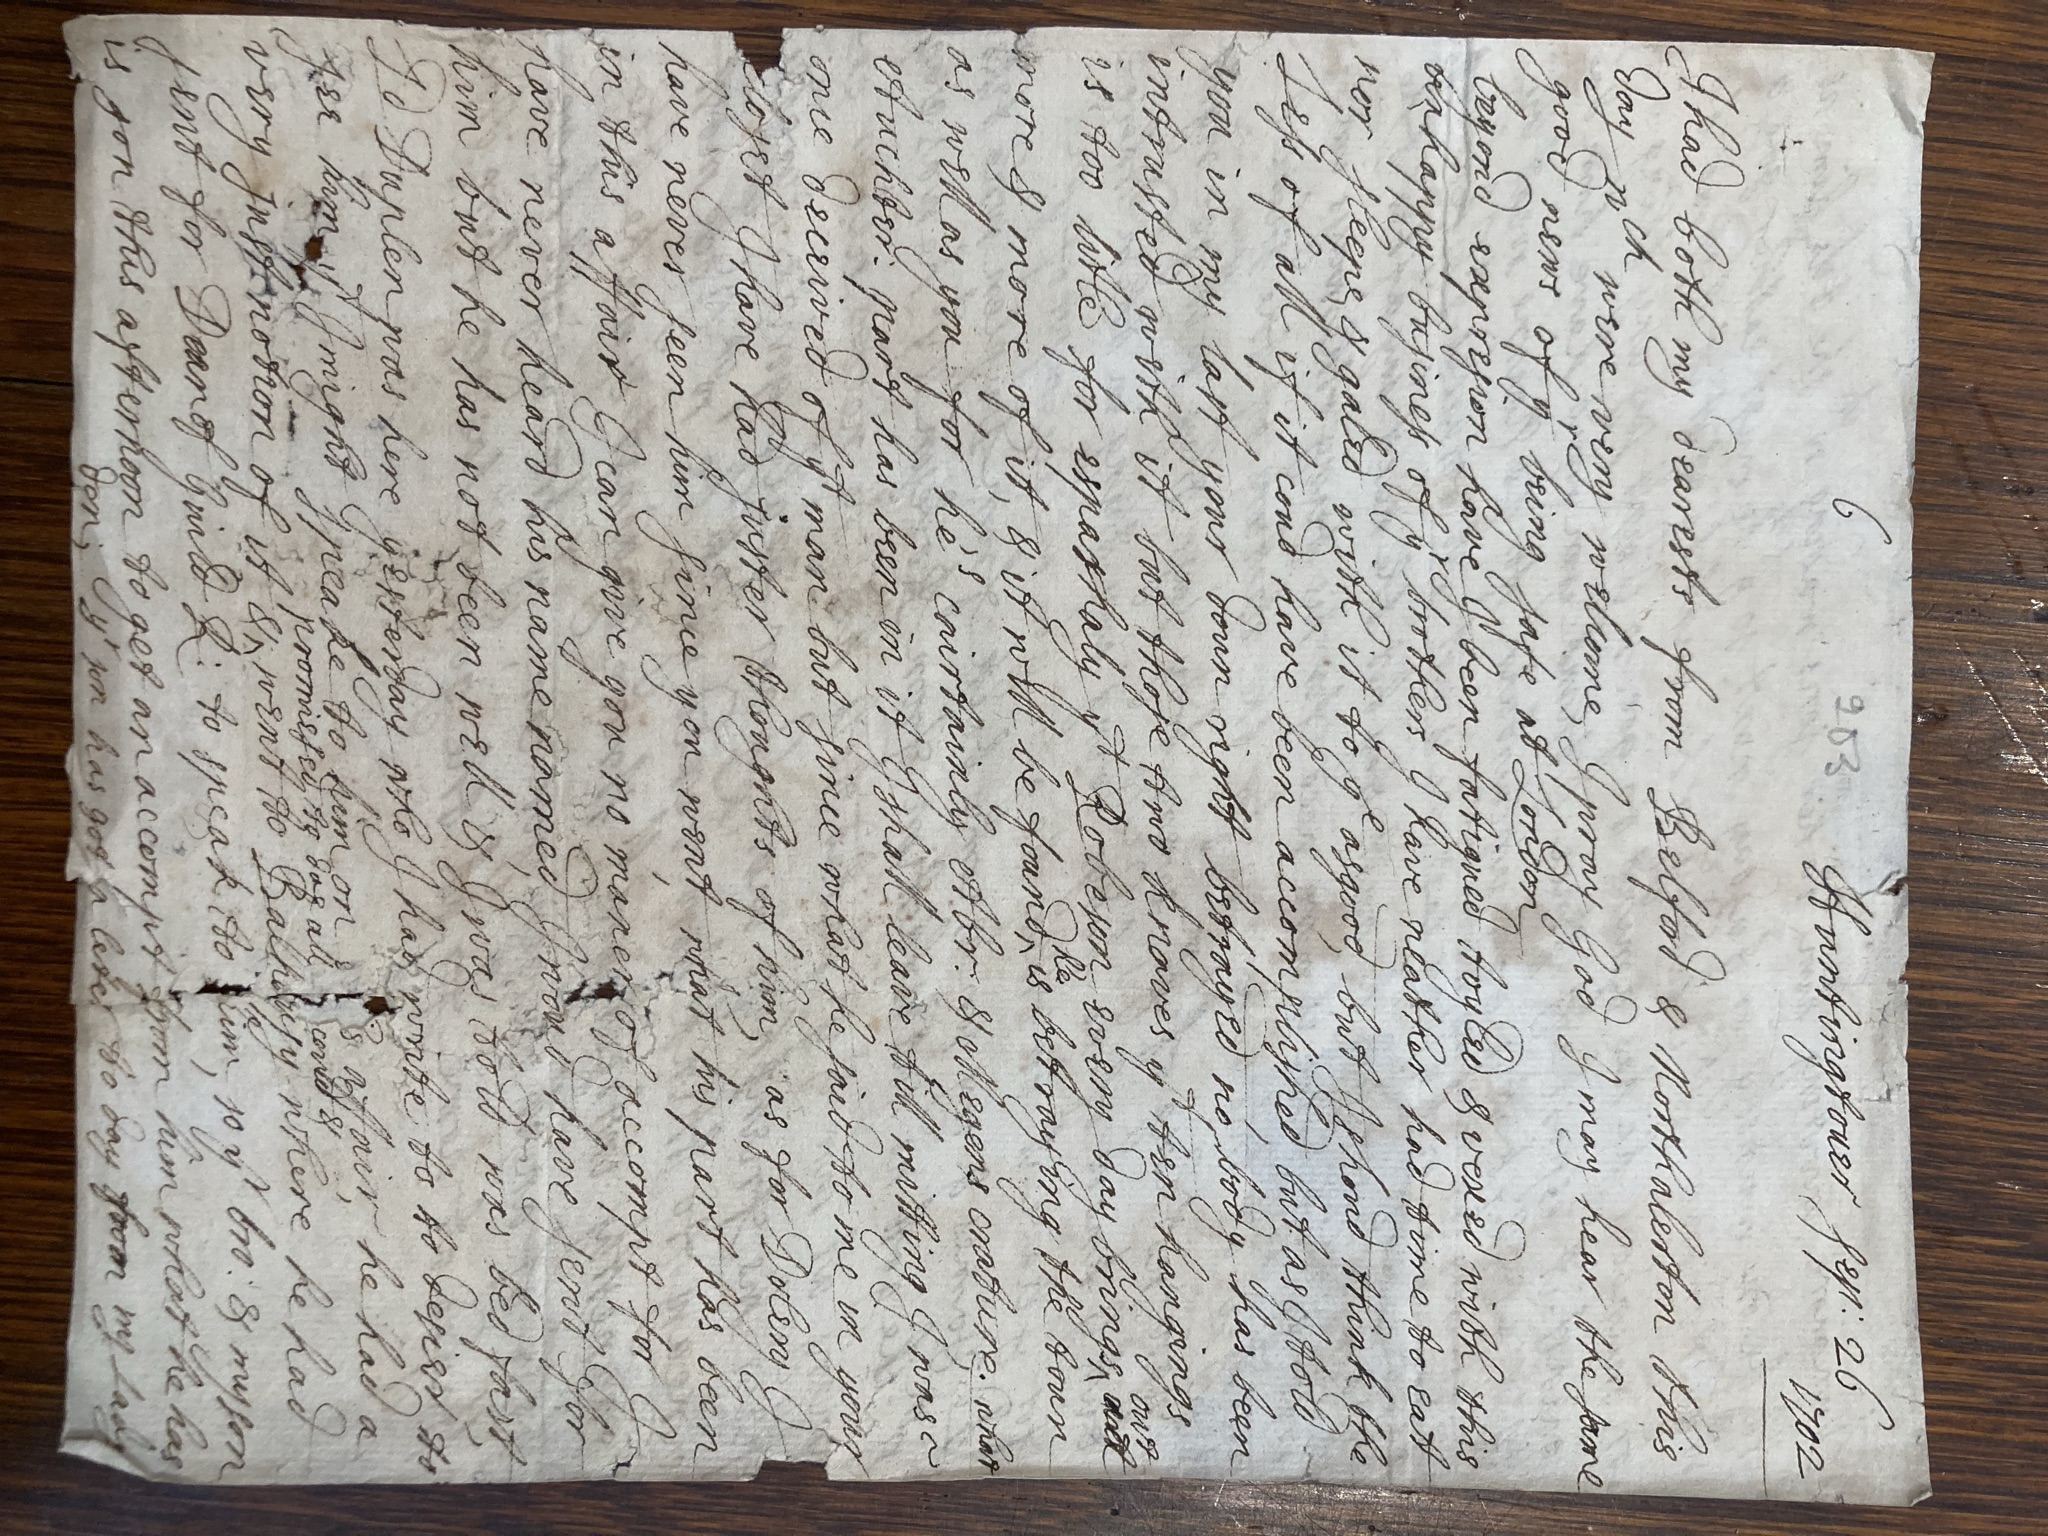 6 203 Huntingtouer Sep: 26
1702
I had both my dearests from Belford & Northalerton this
day wch were very welcome, I pray God I may hear the same
good news of yr being safe at London
beyond expresion have I been fatigued toyled & vexed with this
unhappy business of yr brothers I have neather had time to eat
nor sleepe, & galed with it to ye asgood, but I shoud think the
Less of all if it coud have been accomplished, but as I told
you in my last your doun right betrayed no body has been
intrusted with it but those two knaves yt ten hangings
is too litle for espashaly yt Robeson every day brings out
more & more of it, & it will be found he is betraying the toun
as well as you for he's cairtainly Abr: & Megens crature; what
Auchter: part has been in it I shall leave till mitting I was
once deceived of yt man but since what he said to me in your
closet I have had juster thoughts of him, as for Dolery I
have never seen him since you went, what his part has been
in this affair I can give you no maner of accompt for I
have never heard his name named, I woud have sent for
him but he has not been well & I was told was bed fast,
Ld Duplen was here yesterday who I had write to to desier to
see him yt I might speake to him on s affair, he had a
promiesed to doe all coud &
very just notion of it & went to Balhousy where he had
sent for Dean of Guild R: to speak to him, so yr bro: & my son
is gon this afternoon to get an accompt from him what he has
don; yr son has got a leter to day from my Lady